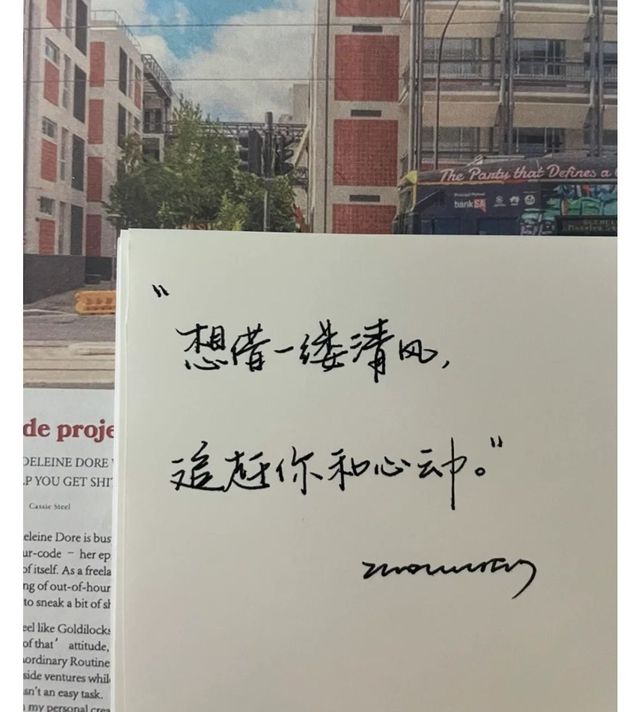 The Party that Defines a
bankSA
de proje
DELEINE DORE
P YOU GET SHI
Cassie Steel
eleine Dore is bus
ur-code – her ep
of itself. As a freela
ng of out-of-hour
to sneak a bit of sl
eel like Goldilocks
of that' attitude,
aordinary Routine
side ventures whil
sn't an easy task.
my personal crea
"想借一缕清风,
追赶你和心动。"